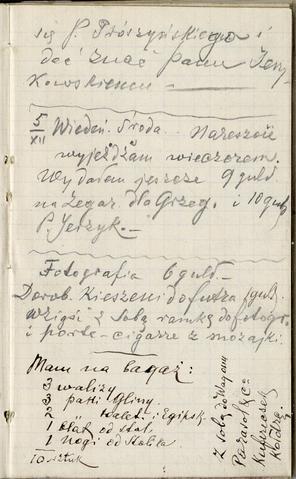 się P. Prószyńskiego i
dać znać Panu Jezy
kowskiemu
5/XII Wiedeń. Środa. Nareszcie
wyjeżdżam wieczorem.
Wydałem jeszcze 9 guld.
na zegar. dla Grzeg. i 10 guld
P. Jerzyk.
Fotografia 6 guld.
Dorob. Kieszeni do futra 1 guld.
Wziąść z sobą ramkę do fotogr.
i porte-cigarre z mozajki.
Mam na bagaż:
3 walizy
3 paki Gliny.
2 " Kalet. i Egipsk.
1 od Stal.
1 nogi od Stolika
10 sztuk
Z sobą do Wagonu
Parasol &c
Kuferasek
Kołdrę.